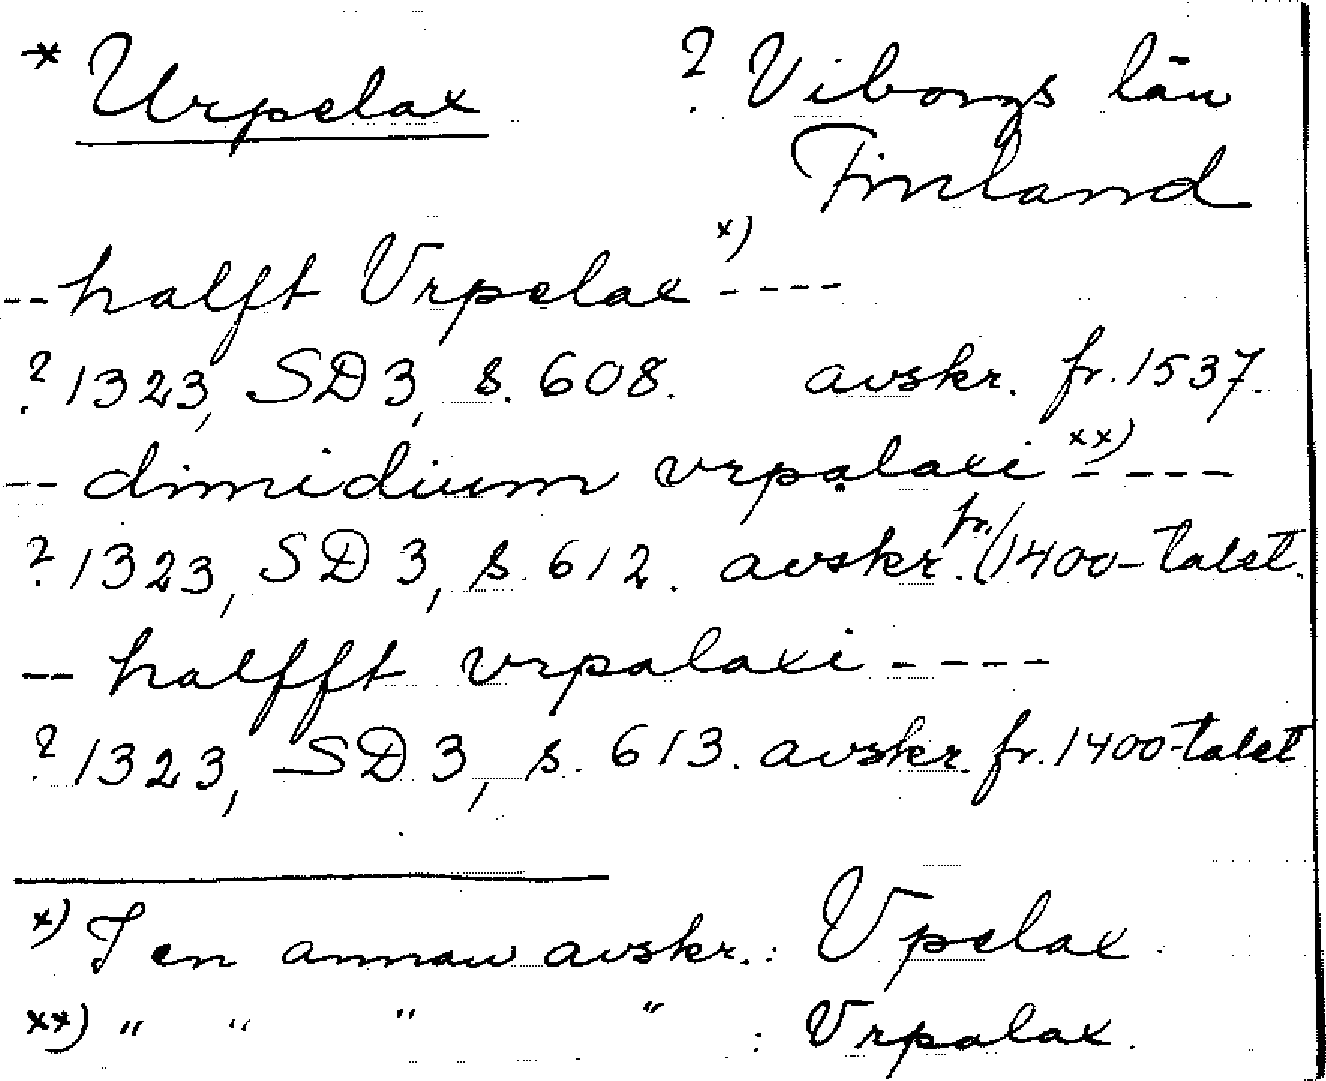 * Urpelax ? Viborgs län
Finland
-- halft Vrpelax x) ----
? 1323, SD 3, s. 608. avskr. fr. 1537.
-- dimidium vrpalaxi xx) ----
? 1323, SD 3, s. 612. avskr. fr. 1400-talet.
-- halfft vrpalaxi ----
? 1323, SD 3, s. 613. avskr. fr. 1400-talet
x) I en annan avskr. : Vpelax.
xx) " " " " : Vrpalax.